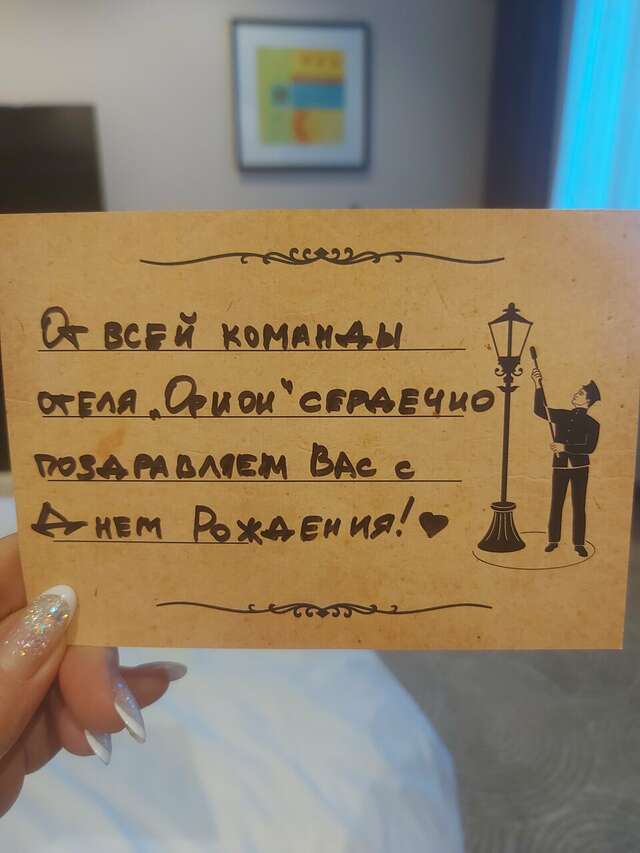 От всей команды
отеля „Орион“ сердечно
поздравляем Вас с
Днем Рождения! ♥